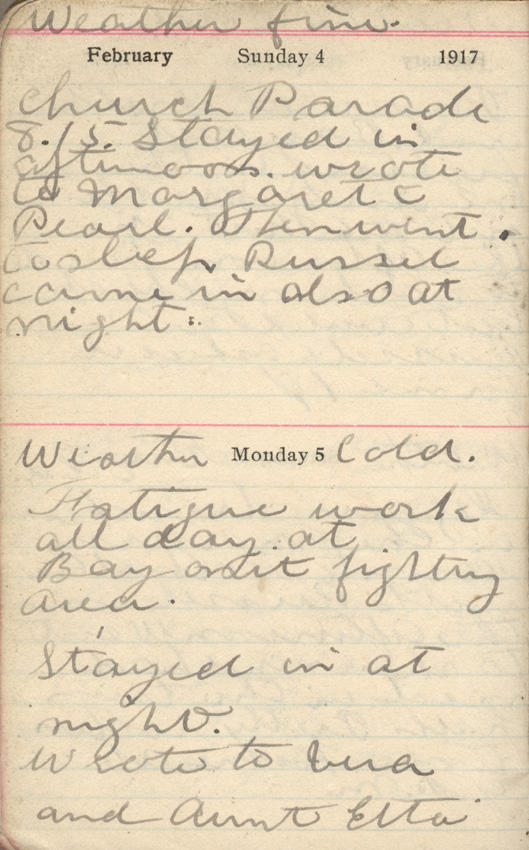 Weather fine.
February Sunday 4 1917
Church Parade
8.15. Stayed in
afternoon. wrote
to Margaret &
Pearl. Then went
to sleep Russel
came in also at
night.
Weather Monday 5 Cold.
Fatigue work
all day at
Bayonet fighting
area.
Stayed in at
night.
Wrote to Vera
and Aunt Etta